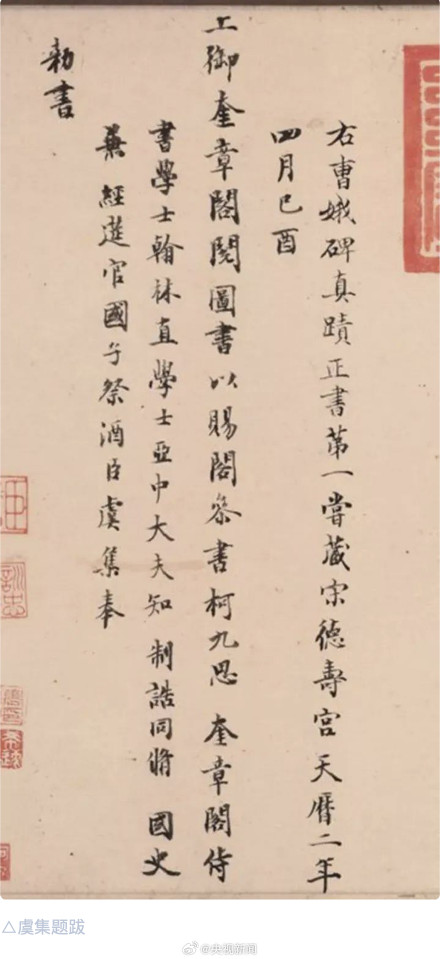 右曹娥碑真蹟正書第一嘗藏宋德壽宮天曆二年
四月己酉
上御奎章閣閱圖書以賜閣叅書柯九思 奎章閣侍
書學士翰林直學士亞中大夫知 制誥同脩 國史
兼經筵官國子祭酒臣虞集奉
勅書
△虞集题跋
@央视新闻